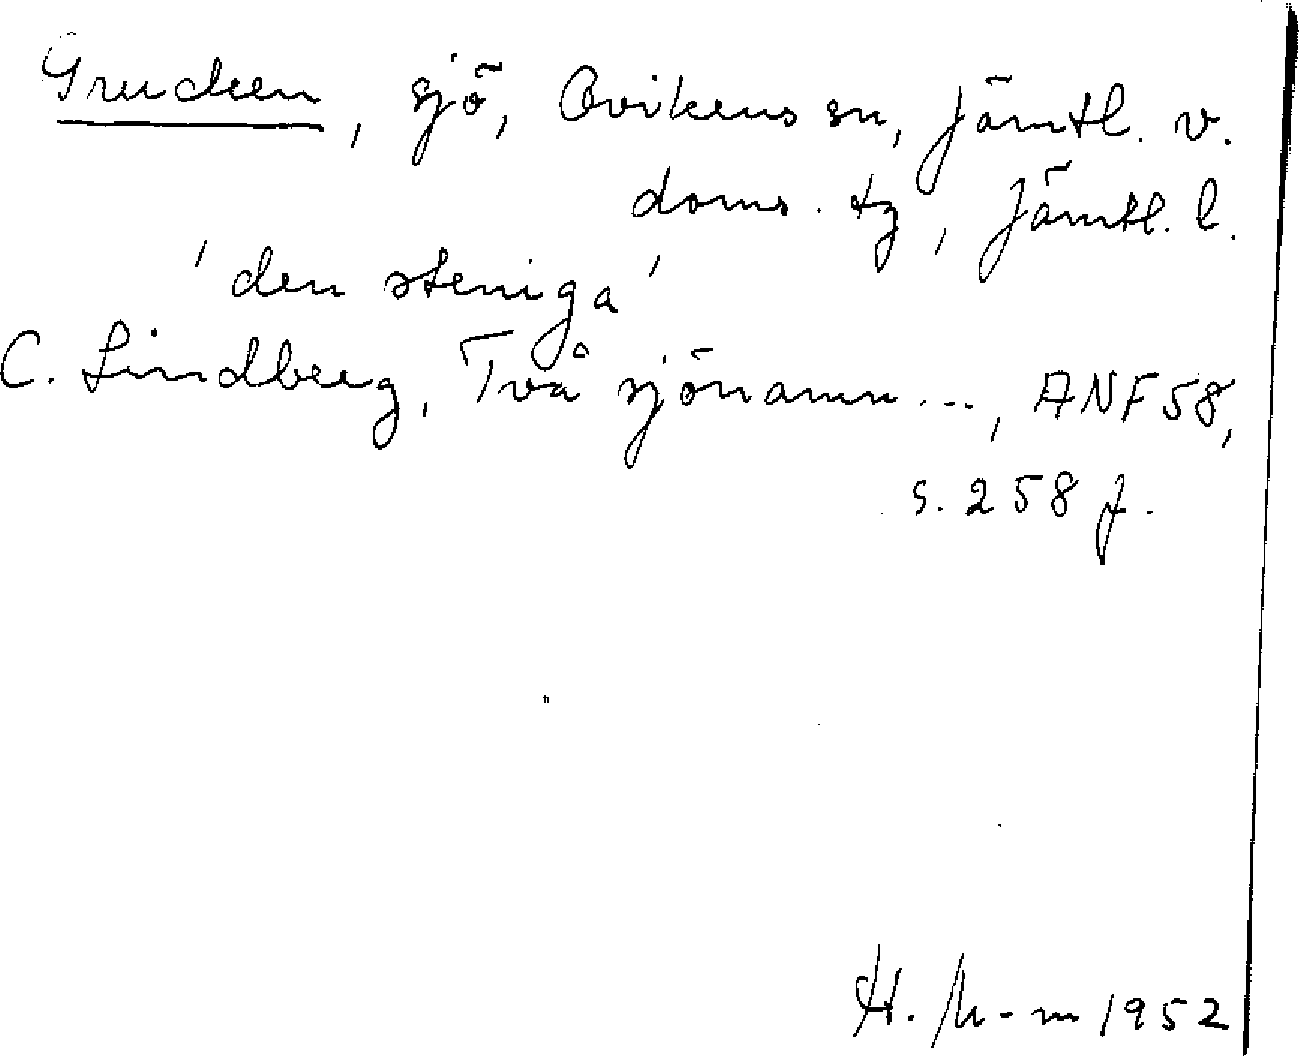 Grucken, sjö, Ovikens sn, Jämtl. v.
doms. tg, Jämtl. l.
'den steniga'
C. Lindberg, Två sjönamn ..., ANF 58,
s. 258 f.
H. M-m 1952